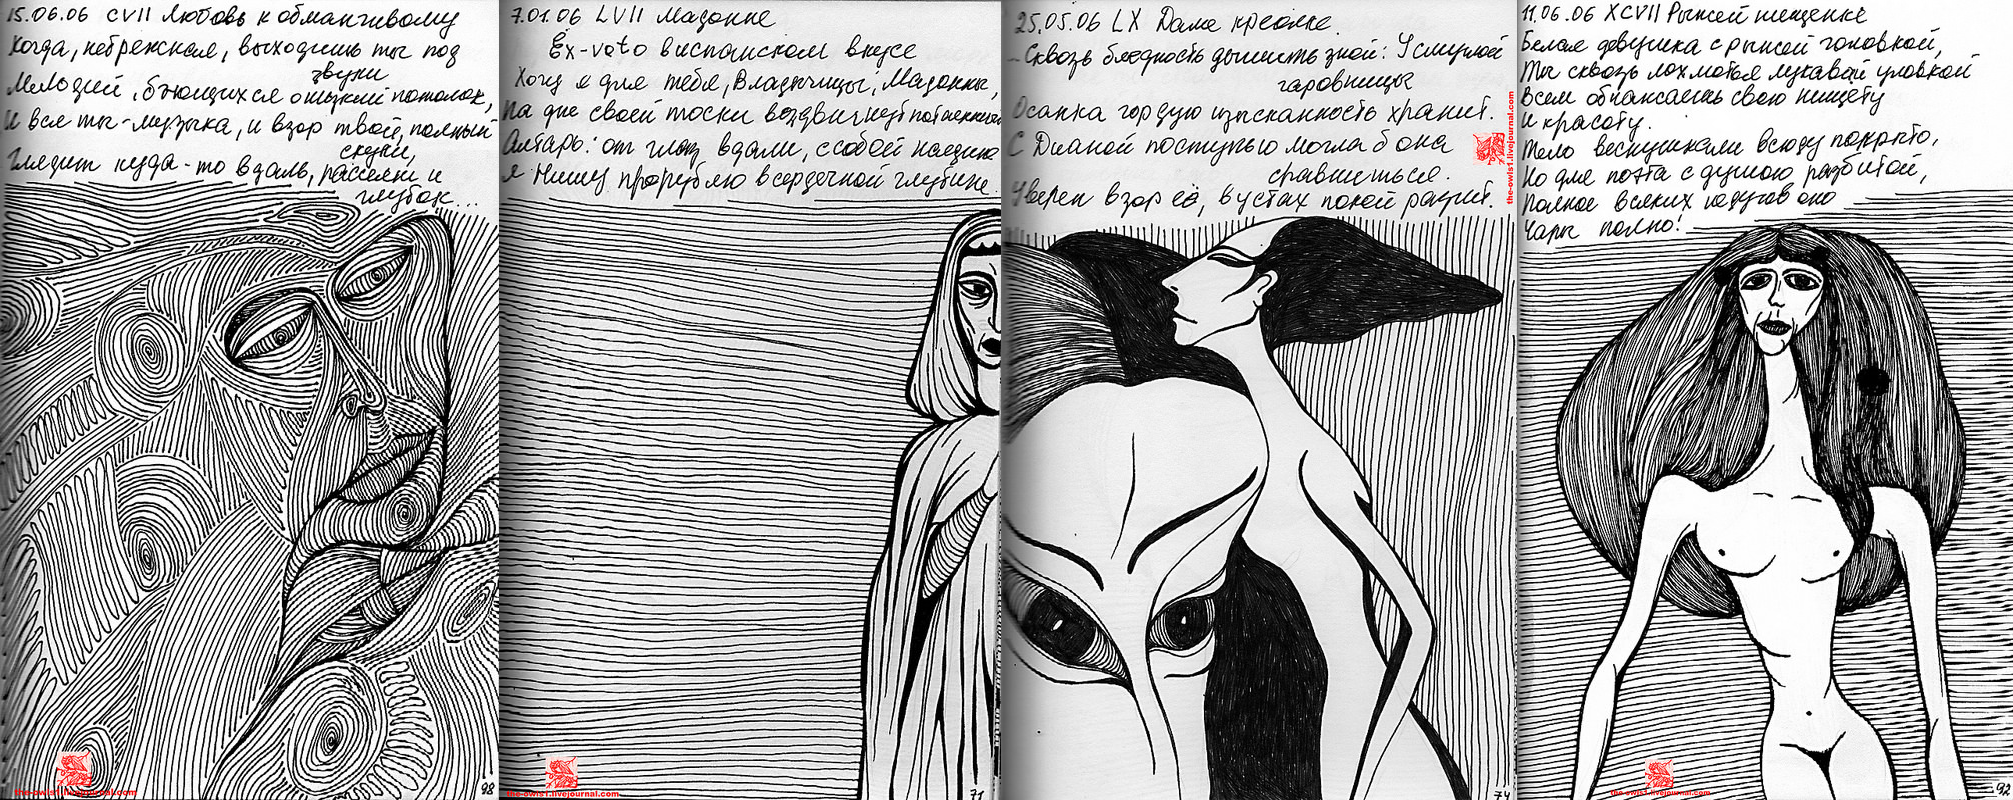 15.06.06 CVII Любовь к обманчивому
Когда, небрежная, выходишь ты под
звуки
Мелодий, бьющихся о низкий потолок,
И вся ты - музыка, и взор твой, полный
скуки,
Глядит куда-то вдаль, рассеян и
глубок...
98
7.01.06 LVII Мадонне
Ex-voto в испанском вкусе
Хочу я для тебя, Владычицы, Мадонны,
На дне своей тоски воздвигнуть потаенный
Алтарь: от глаз вдали, с собой наедине
я Нишу прорублю в сердечной глубине.
the-owls1.livejournal.com
71
25.05.06 LX Даме креолке.
Сквозь бледность дышит зной: У смуглой
чаровницы
Осанка гордую изысканность хранит.
С Дианой поступью могла б она
сравниться.
Уверен взор её, в устах покой разлит.
the-owls1.livejournal.com
74
11.06.06 XCVII Рыжей нищенке
Белая девушка с рыжей головкой,
Ты сквозь лохмотья лукавой уловкой
Всем обнажаешь свою нищету
И красоту.
Тело веснушками всюду покрыто,
Но для поэта с душою разбитой,
Полное всяких недугов оно
Чары полно!
the-owls1.livejournal.com
the-owls1.livejournal.com